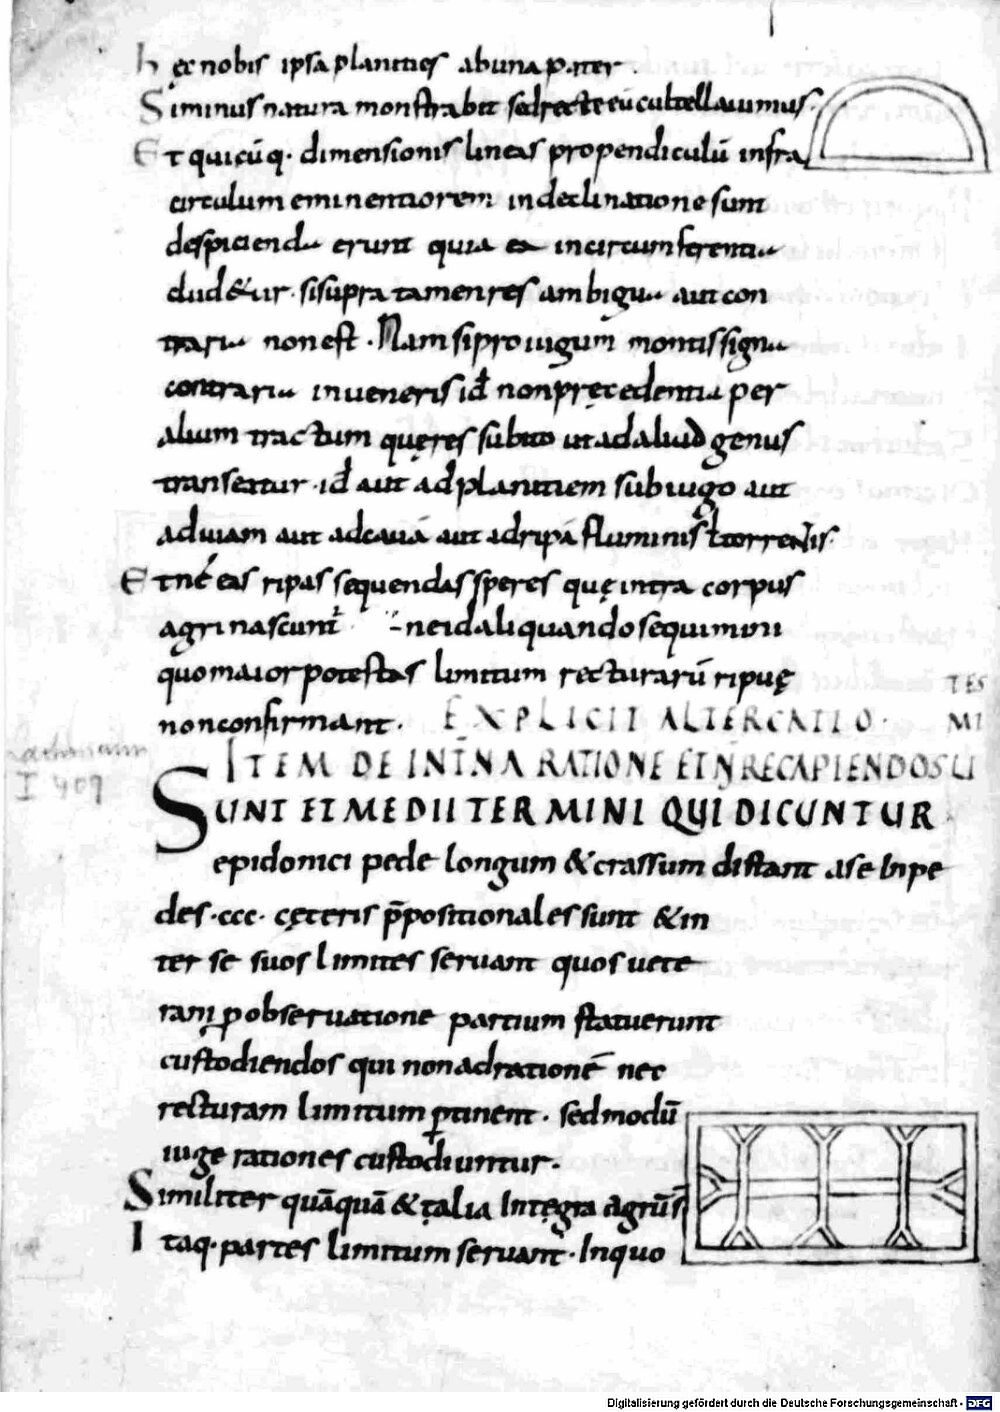 hęc nobis ipsa planities abuna pater.
Siminus natura monstrabit sedrecte eū cultellauimus.
Et quicūq. dimensionis lineas propendiculū infra
circulum eminentiorem indeclinatione sunt
despicienda erunt quia ea incircumferentia
clud&ur. sisupra tamen res ambigua aut con
traria non est. Nam siproiugum montis signa
contraria inueneris id nonpręcedentia per
alium tractum quęres subito utadaliud genus
transeatur. id aut adplanitiem subiugo aut
aduiam aut adcauā aut adripā fluminis
Et nē eas ripas sequendas speres quę intra corpus
agri nascunt neid aliquando sequimini
quomaior potestas limitum recturarū ripuę
nonconfirmant. EXPLICIT ALTERCATIO. MI
TES
ITEM DE RATIONE ET RECAPIENDOS LI
SUNT ET MEDII TERMINI QUI DICUNTUR
epidonici pede longum & crassum distant ase Inpe
des .ccc. cęteris p̄positionales sunt & in
ter se suos limites seruant quos uete
rani ꝑobseruatione partium statuerunt
custodiendos qui non adrationē nec
recturam limitum ꝑtinent. sedmodū
iuge rationes custodiuntur.
Similiter quāquā & talia Integra agrūs
Itaq. partes limitum seruant. Inquo
Lachmann
I 409
Digitalisierung gefördert durch die Deutsche Forschungsgemeinschaft - DFG